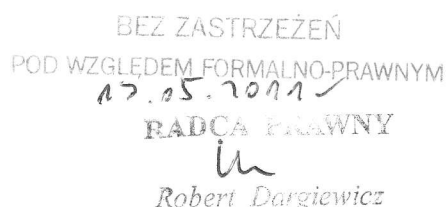 BEZ ZASTRZEŻEŃ
POD WZGLĘDEM FORMALNO-PRAWNYM
17.05.2011
RADCA PRAWNY
Robert Dargiewicz